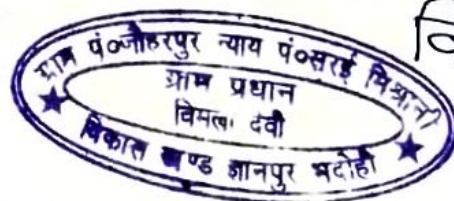 ग्राम पं०जोहरपुर न्याय पं०सरई मिश्रानी
ग्राम प्रधान
विमला देवी
विकास खण्ड ज्ञानपुर भदोही